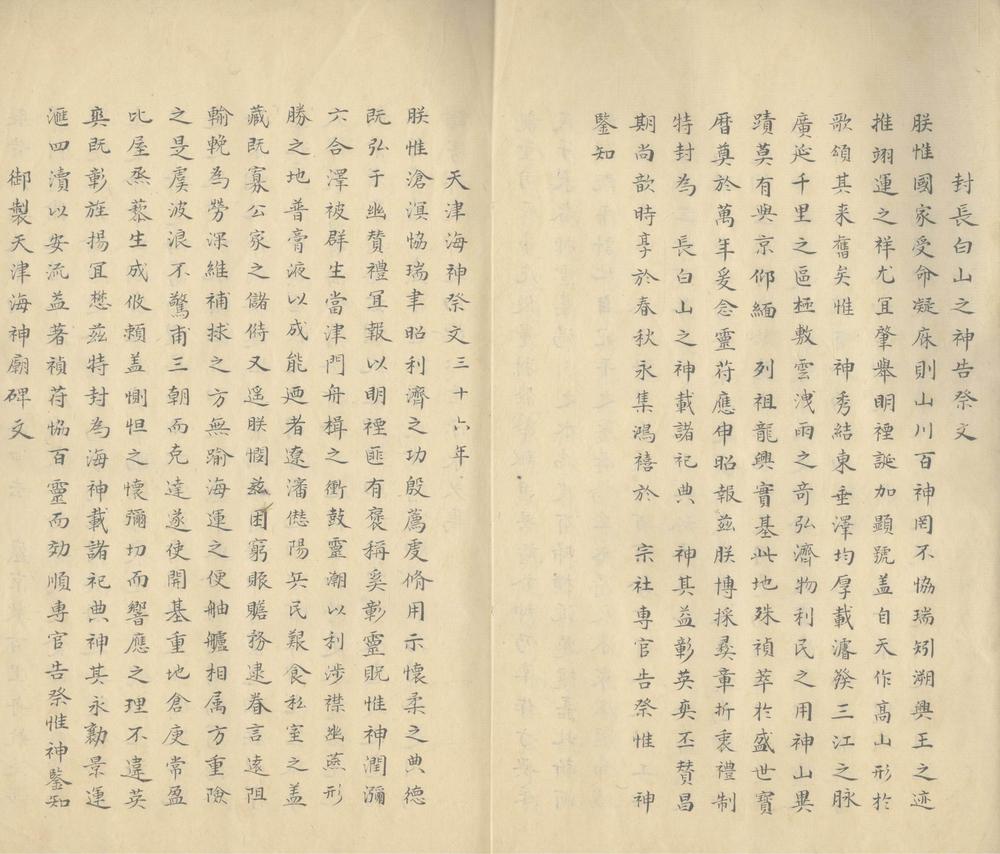 封長白山之神告祭文
朕惟國家受命凝庥則山川百神罔不恊瑞矧溯興王之迹
推翊運之祥尤宜肇舉明禋誕加顯號盖自天作高山形於
歌頌其来舊矣惟　神秀結東垂澤均厚載濬發三江之脉
廣延千里之區極敷雲洩雨之竒弘濟物利民之用神山異
蹟莫有與京仰緬　列祖龍興實基此地殊禎萃於盛世寳
曆奠於萬年爰念靈符應申昭報兹朕博採彛章折衷禮制
特封為　長白山之神載諸祀典　神其益彰英奭丕賛昌
期尚歆時享於春秋永集鴻禧於　宗社専官告祭惟　神
鑒知
天津海神祭文三十六年
朕惟滄溟恊瑞聿昭利濟之功殷薦虔脩用示懷柔之典德
既弘于幽賛禮宜報以明禋匪有褒稱奚彰靈貺惟神潤瀰
六合澤被群生當津門舟楫之衝鼓靈潮以利涉襟幽燕形
勝之地普膏液以成能廼者遼瀋愆陽兵民艱食私室之盖
藏既寡公家之儲偫又遥朕憫兹困窮賑贍務逮眷言遠阻
輸輓為勞深維補救之方無踰海運之便舳艫相属方重險
之是虞波浪不驚甫三朝而克達遂使開基重地倉庾常盈
比屋烝藜生成攸頼盖惻怛之懷彌切而響應之理不違英
奭既彰旌揚宜懋兹特封為海神載諸祀典神其永勷景運
滙四瀆以安流益著禎符恊百靈而効順専官告祭惟神鑒知
御製天津海神廟碑文